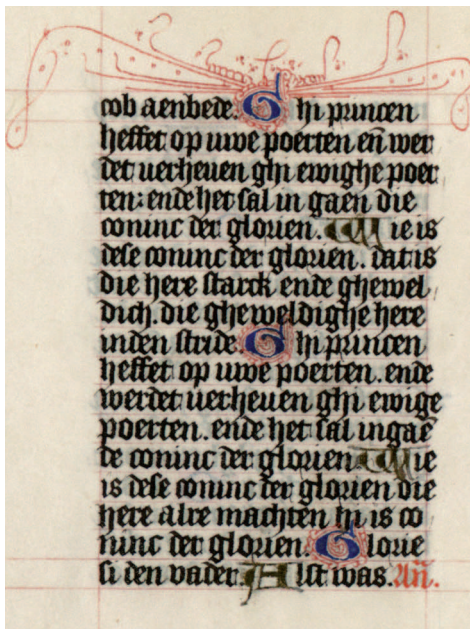 cob aenbede. Ghi princen
heffet op uwe poerten en̄ wer
det verheuen ghi ewighe poer
ten: ende het sal in gaen die
coninc der glorien. Wie is
dese coninc der glorien. dat is
die here starck ende ghewel
dich. die gheweldighe here
inden stride Ghi princen
heffet op uwe poerten. ende
werdet uerheuen ghi ewige
poerten. ende het sal ingaē
de coninc der glorien Wie
is dese coninc der glorien die
here alre machten hi is co
ninc der glorien. Glorie
si den vader. Alst was. An̄.